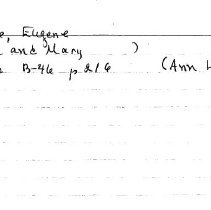 , Eugene
and Mary )
B-46 p 216 (Ann